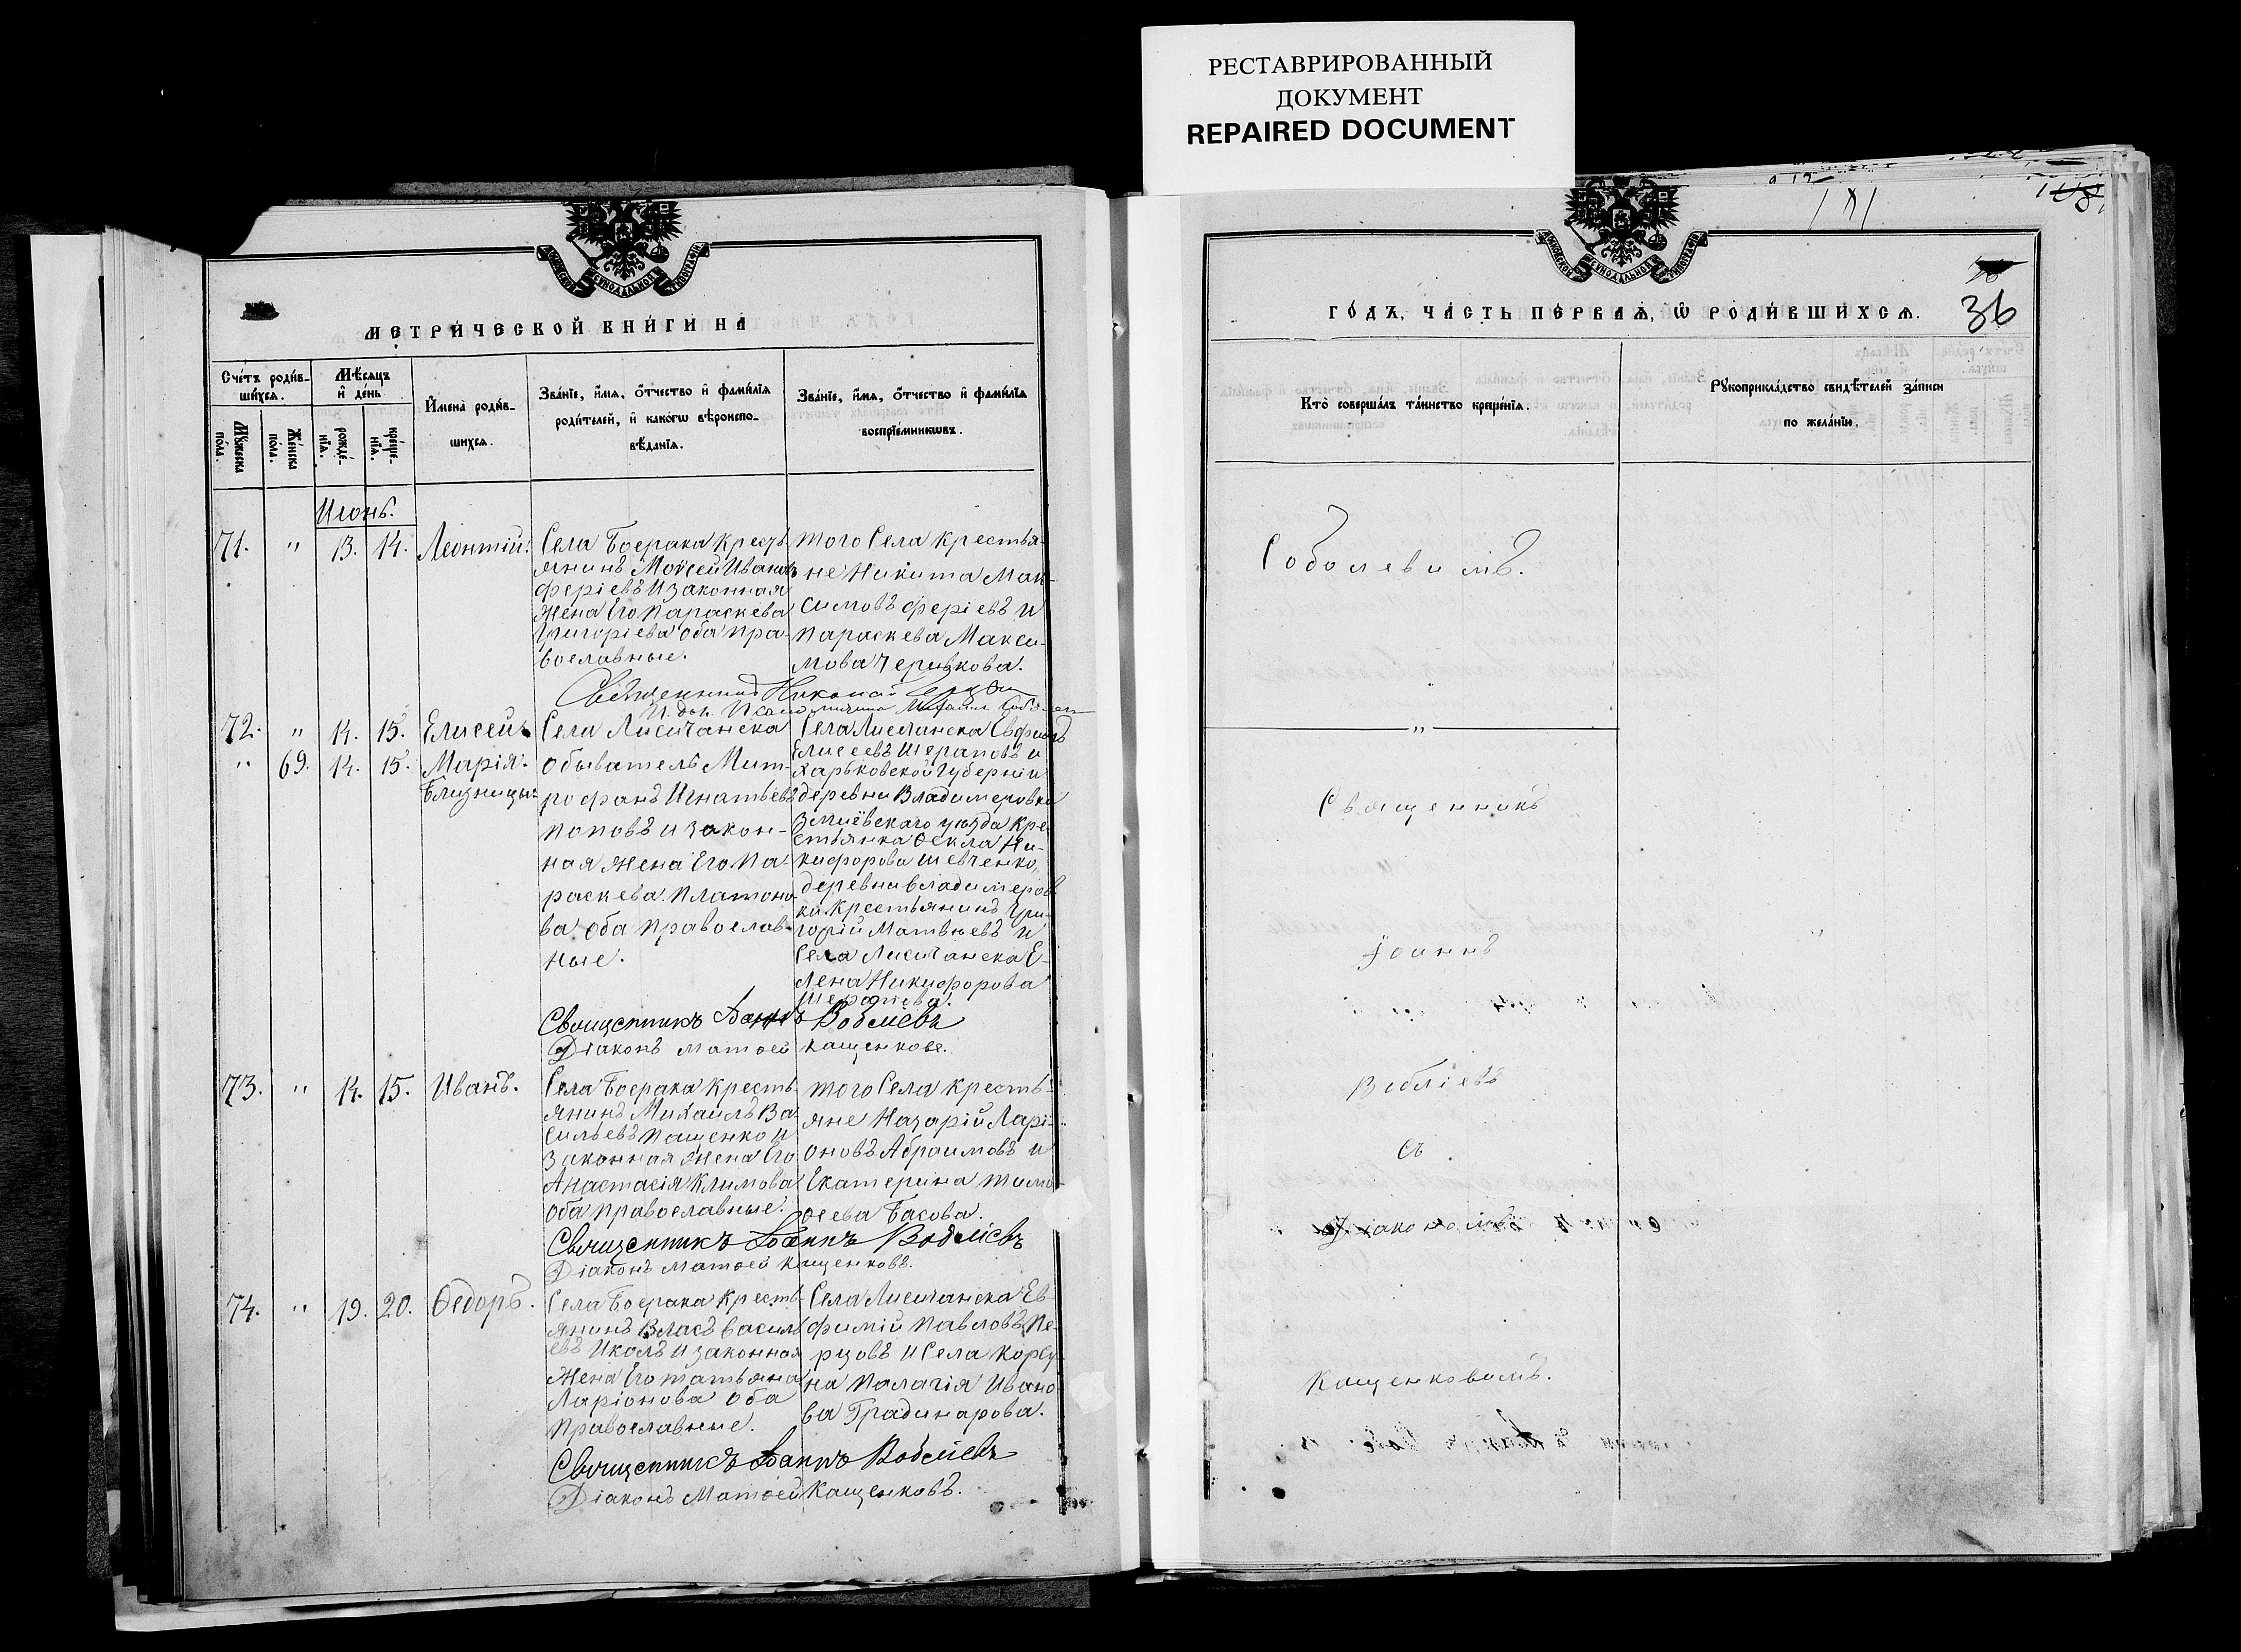 РЕСТАВРИРОВАННЫЙ
ДОКУМЕНТ
REPAIRED DOCUMENT
МОСКОВСКОЙ СѴНОДАЛЬНОЙ ТИПОГРАФІИ
МЕТРИ́ЧЕСКОЙ КНИ́ГИ НА
Сче́тъ роди́в-
шихсѧ.
Мꙋ́жеска
по́ла.
Же́нска
по́ла.
Мѣ́сѧцъ
и҆ де́нь
рожде́-
нїѧ.
креще́-
нїѧ.
И҆мена̀ роди́в-
шихсѧ.
Зва́нїе, и҆́мѧ, ѻ҆́тчество и҆ фами́лїѧ
роди́телей, и҆ како́гѡ вѣроиспо-
вѣ́данїѧ.
Зва́нїе, и҆́мѧ, ѻ҆́тчество и҆ фами́лїѧ
воспрїе́мникѡвъ.
Июнь.
71. " 13. 14. Леонтій.
Села Боерака кресть-
янинъ Моѵсей Ивановъ
феріевъ и законная
жена его Параскева
Григоріева оба пра-
вославные.
того Села крестья-
не Никита Мак-
симовъ феріевъ и
Параскева Макси-
мова
Священникъ Николай
И. дол. Псаломщика Михаилъ
72. " 14. 15. Елисей
" 69. 14. 15. Марія.
Близнецы.
Села Лисичанска
обыватель Мит-
рофанъ Игнатьевъ
Поповъ и закон-
ная жена его Па-
раскева Платоно-
ва оба православ-
ные.
Села Лисичанска
Елисеевъ Шераповъ и
Харьковской Губерніи
деревни Владимеровки
Зміевского уѣзда кре-
стьянка Ѳекла Ни-
кифорова Шевченко,
деревни владимеров
ки крестьянинъ Гри-
горій Матвѣевъ и
Села Лисичанска Е-
лена Никифорова
Шерапова.
Священникъ Іоаннъ Вобліевъ
Діаконъ Матѳей Кащенковъ.
73. " 14. 15. Иванъ.
Села Боерака кресть-
янинъ Михаилъ Ва-
сильевъ Пащенко и
законная жена его
Анастасія Климова
оба православные.
того Села кресть-
яне Назарій Ларі-
оновъ Абраимовъ и
Екатерина Тимо-
ѳеева Басова.
Священникъ Іоаннъ Вобліевъ
Діаконъ Матѳей Кащенковъ.
74. " 19. 20. Ѳедоръ.
Села Боерака кресть-
янинъ Власъ Василь
евъ Иколъ и законная
жена его татьяна
Ларіонова оба
православные.
Села Лисичанска Ев-
фимій Павловъ Пе-
рцовъ и Села Корсу
на Палагія Ивано
ва Градинарова.
Священникъ Іоаннъ Вобліевъ
Діаконъ Матѳей Кащенковъ.
МОСКОВСКОЙ СѴНОДАЛЬНОЙ ТИПОГРАФІИ
ГО́ДЪ, ЧА́СТЬ ПЕ́РВАѦ, Ѽ РОДИ́ВШИХСѦ.
36
Кто̀ соверша́лъ та́инство креще́нїѧ.
Рꙋкоприкла́дство свидѣ́телей за́писи
по жела́нїю.
Соболевимъ.
"
Священникъ
Іоаннъ
"
Вобліевъ
съ
Діакономъ
Кащенковымъ.